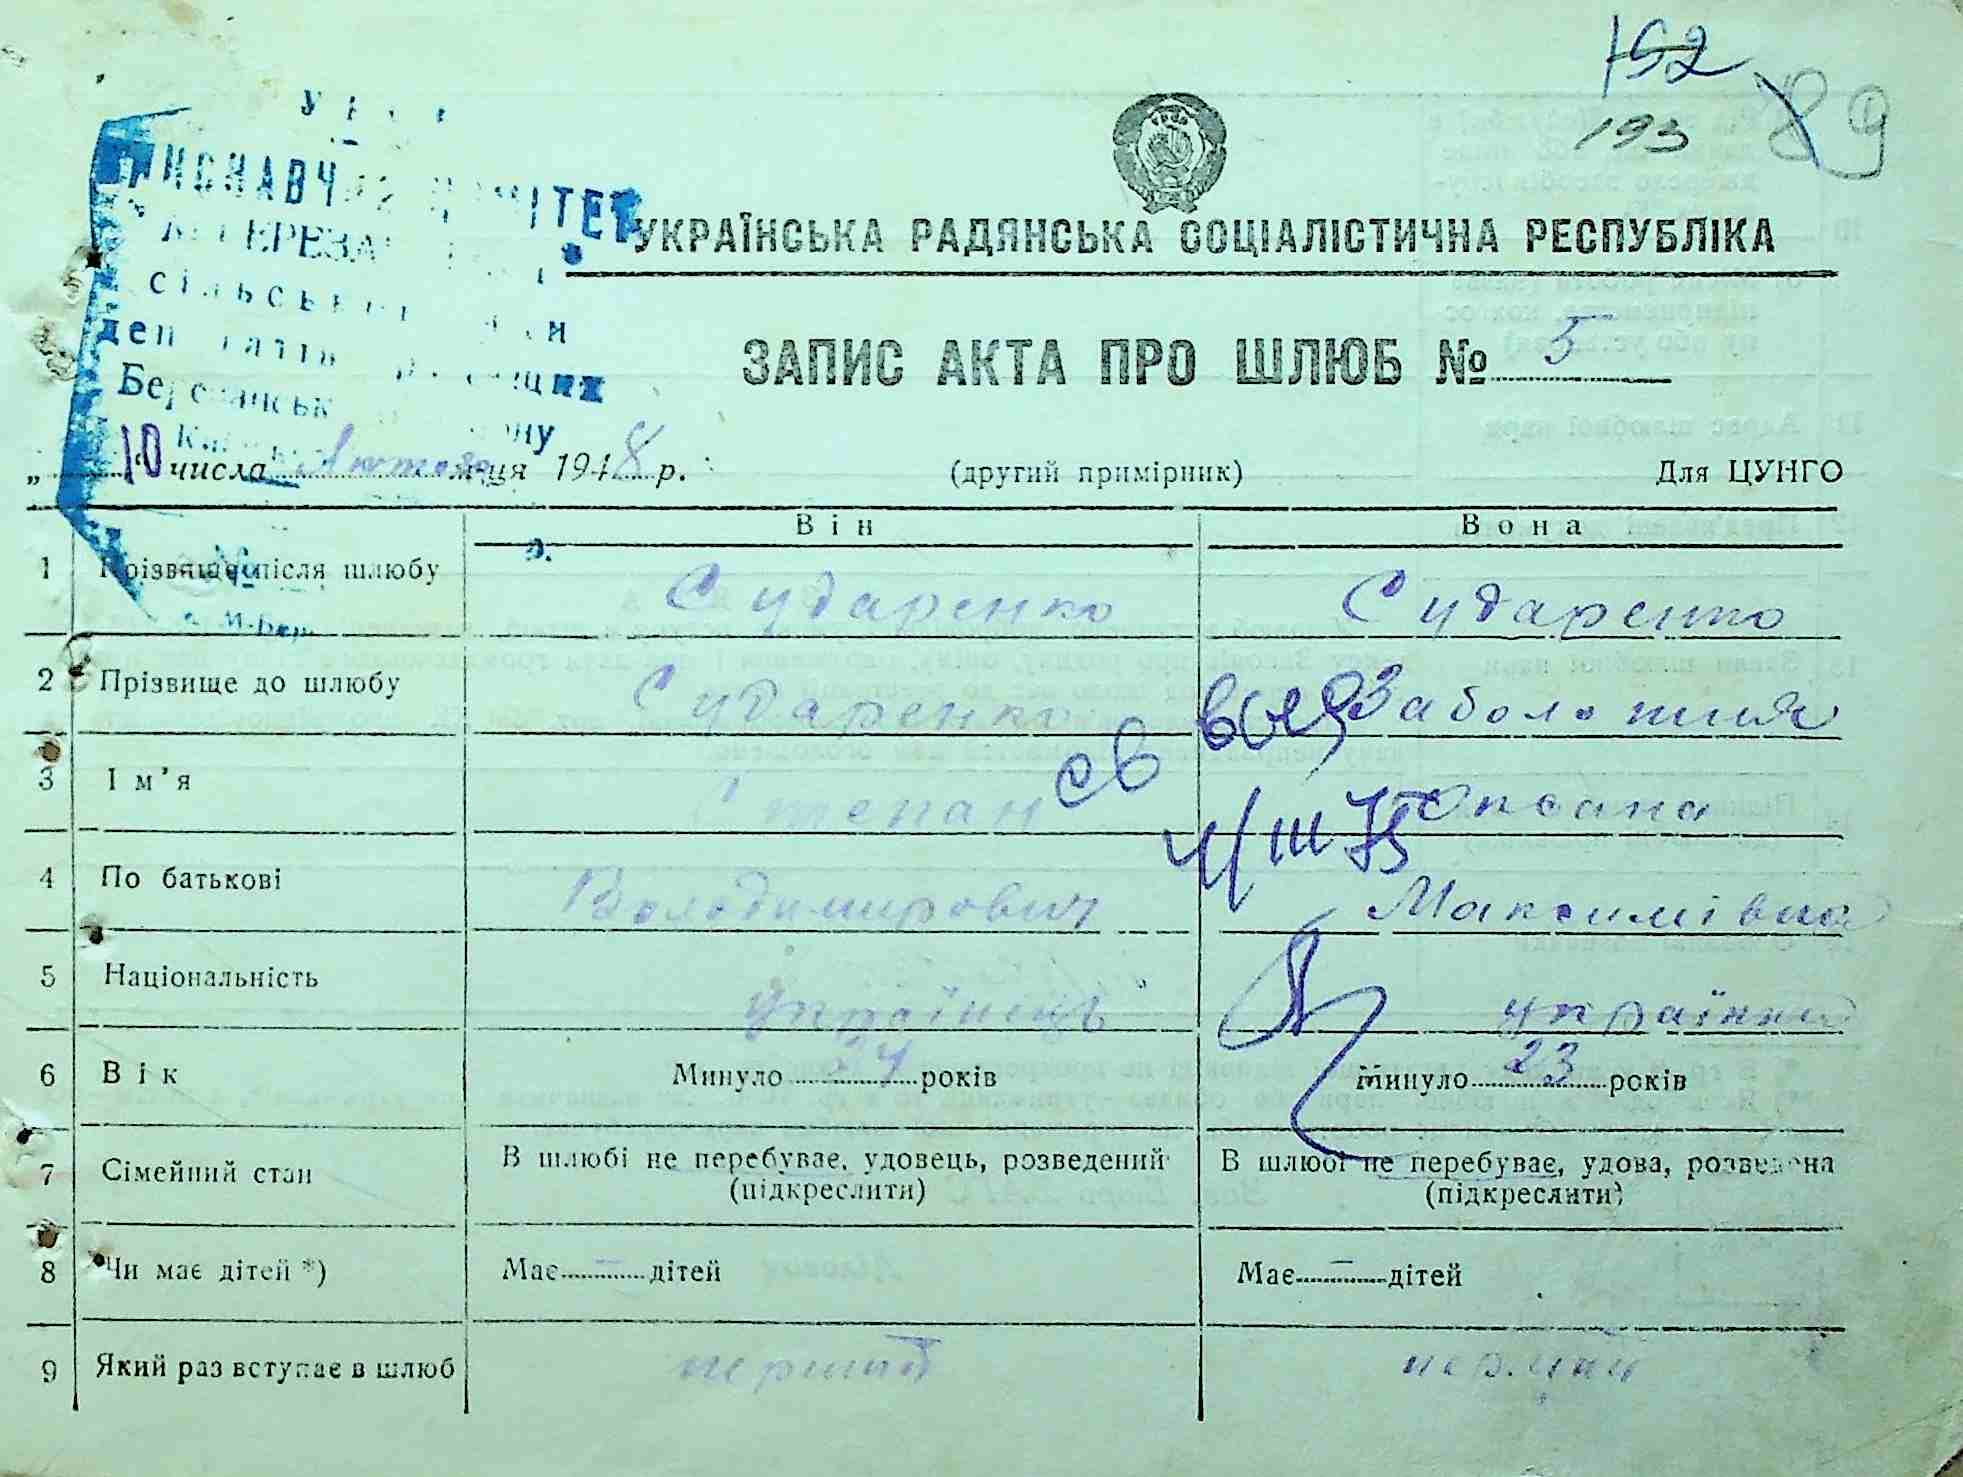 152
193 89
УКРАЇНСЬКА РАДЯНСЬКА СОЦІАЛІСТИЧНА РЕСПУБЛІКА
ЗАПИС АКТА ПРО ШЛЮБ № 5
„10“ числа Лютого м-ця 1948 р.
(другий примірник)
Для ЦУНГО
Він Вона
1 Прізвище після шлюбу Сударенко Сударенко
2 Прізвище до шлюбу Сударенко Заболотня
3 Ім'я Степан Оксана
4/III 75
4 По батькові Володимирович Максимівна
5 Національність українець українка
6 Вік Минуло 24 років Минуло 23 років
7 Сімейний стан В шлюбі не перебуває, удовець, розведений В шлюбі не перебуває, удова, розведена
(підкреслити) (підкреслити)
8 Чи має дітей *) Має — дітей Має — дітей
9 Який раз вступає в шлюб перший перший